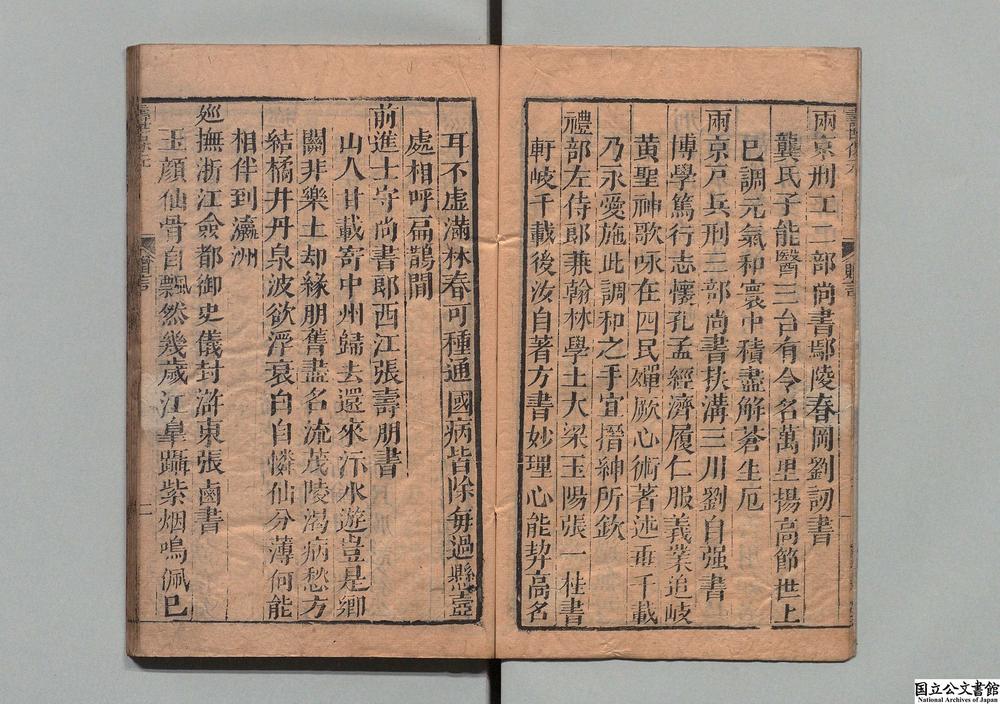 兩京刑工二部尚書鄢陵春岡劉訒書
龔氏子能醫三台有令名萬里揚高節世上
已調元氣和寰中積盡解蒼生厄
兩京戶兵刑三部尚書扶溝三川劉自强書
博學篤行志懷孔孟經濟履仁服義業追岐
黄聖神歌咏在四民嬋厥心術著述垂千載
乃永愛施此調和之手宜搢紳所欽
禮部左侍郎兼翰林學士大梁玉陽張一桂書
軒岐千載後汝自著方書妙理心能契高名
耳不虚滿林春可種通國病皆除每過懸壺
處相呼扁鵲閭
前進士守尚書郎西江張壽朋書
山人廿載寄中州歸去還來汴水遊豈是鄉
關非樂土却緣朋舊盡名流茂陵渴病愁方
結橘井丹泉波欲浮衰白自憐仙分薄何能
相伴到瀛洲
廵撫浙江僉都御史儀封滸東張鹵書
玉顔仙骨自飄然幾歲江臯躡紫烟鳴佩已
二
国立公文書館
National Archives of Japan